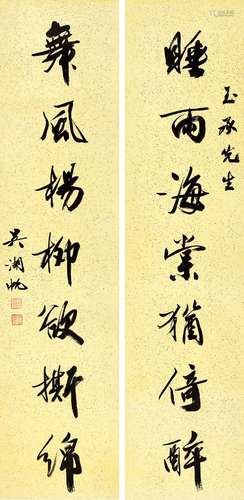 玉承先生
睡雨海棠猶倚醉
舞風楊柳欲撕綿
吳湖帆